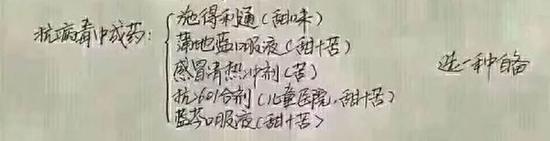 抗病毒中成药:
沲得利通(甜味)
蒲地蓝口服液(甜+苦)
感冒清热冲剂(苦)
抗601合剂(儿童医院,甜+苦)
蓝芩口服液(甜+苦)
选一种自备